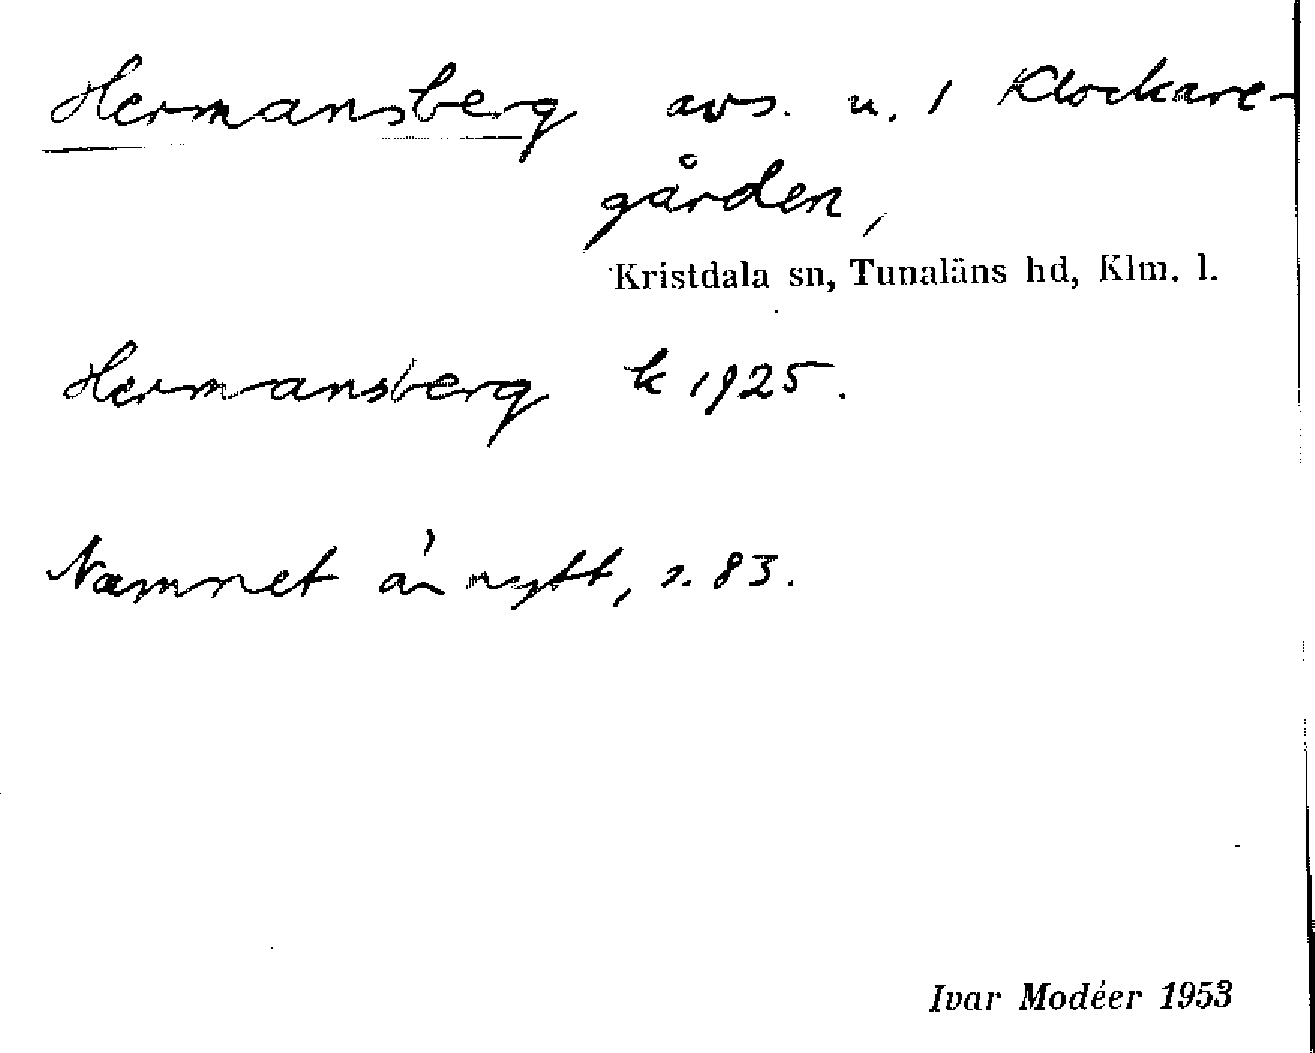 Hermansberg avs. u. 1 Klockare-
gården,
Kristdala sn, Tunaläns hd, Klm. l.
Hermansberg k 1925.
Namnet är nytt, s. 83.
Ivar Modéer 1953